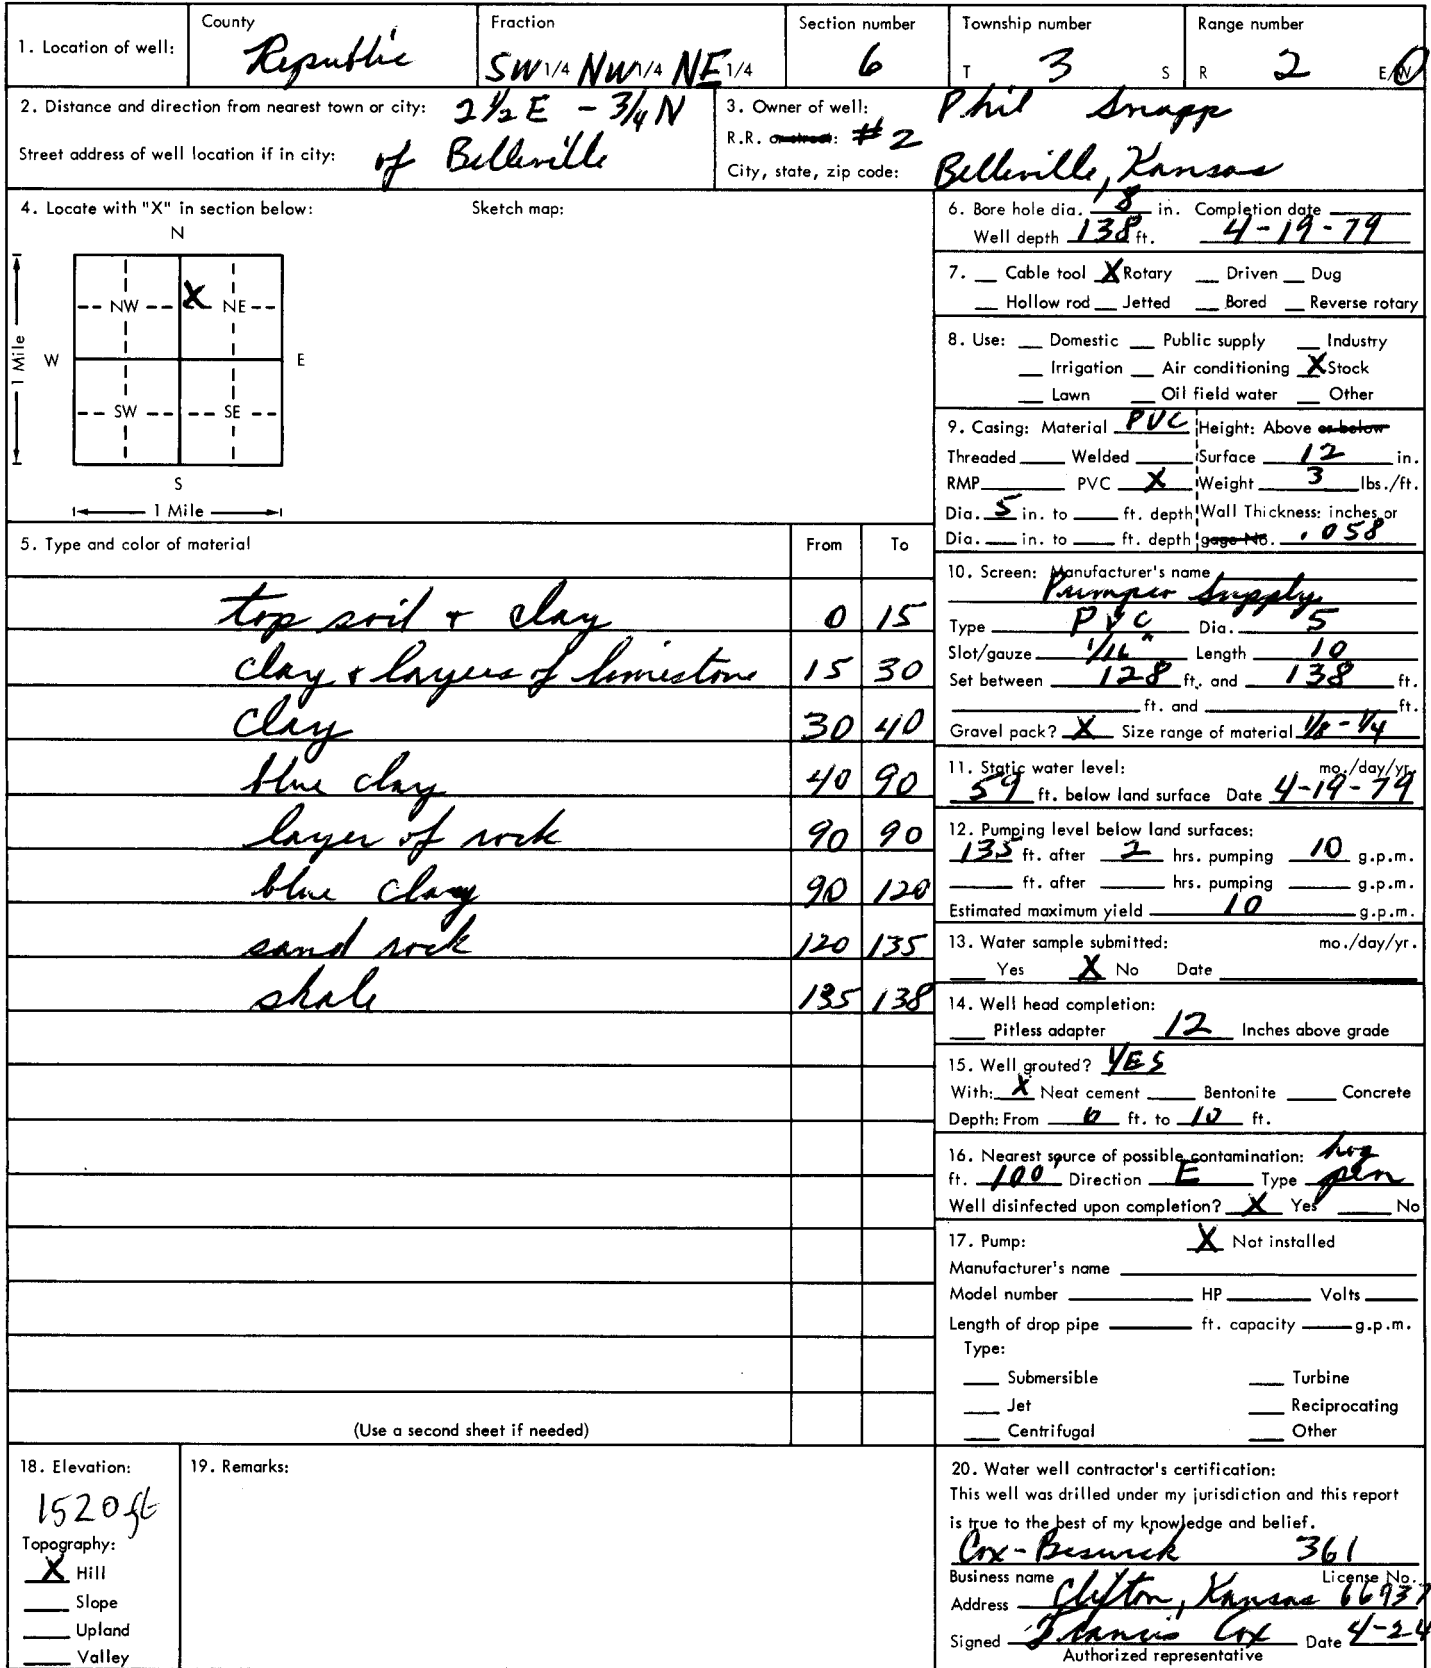 1. Location of well: County Republic Fraction SW 1/4 NW 1/4 NE 1/4 Section number 6 Township number T 3 S Range number R 2 E/W
2. Distance and direction from nearest town or city: 2 1/2 E - 3/4 N
Street address of well location if in city: of Belleville
3. Owner of well: Phil Snapp
R.R. or street: #2
City, state, zip code: Belleville, Kansas
4. Locate with "X" in section below: Sketch map:
N
NW X NE
W E
SW SE
S
1 Mile
1 Mile
5. Type and color of material From To
top soil + clay 0 15
clay + layers of limestone 15 30
clay 30 40
blue clay 40 90
layer of rock 90 90
blue clay 90 120
sand rock 120 135
shale 135 138
(Use a second sheet if needed)
6. Bore hole dia. 8 in. Completion date
Well depth 138 ft. 4-19-79
7. Cable tool X Rotary Driven Dug
Hollow rod Jetted Bored Reverse rotary
8. Use: Domestic Public supply Industry
Irrigation Air conditioning X Stock
Lawn Oil field water Other
9. Casing: Material PVC Height: Above or below
Threaded Welded Surface 12 in.
RMP PVC X Weight 3 lbs./ft.
Dia. 5 in. to ft. depth Wall Thickness: inches or
Dia. in. to ft. depth gage No. .058
10. Screen: Manufacturer's name
Supply
Type PVC Dia. 5
Slot/gauze 1/16" Length 10
Set between 128 ft. and 138 ft.
ft. and ft.
Gravel pack? X Size range of material 1/8 - 1/4
11. Static water level: mo./day/yr.
59 ft. below land surface Date 4-19-79
12. Pumping level below land surfaces:
135 ft. after 2 hrs. pumping 10 g.p.m.
ft. after hrs. pumping g.p.m.
Estimated maximum yield 10 g.p.m.
13. Water sample submitted: mo./day/yr.
Yes X No Date
14. Well head completion:
Pitless adapter 12 Inches above grade
15. Well grouted? YES
With: X Neat cement Bentonite Concrete
Depth: From 0 ft. to 10 ft.
16. Nearest source of possible contamination: hog
ft. 100' Direction E Type pen
Well disinfected upon completion? X Yes No
17. Pump: X Not installed
Manufacturer's name
Model number HP Volts
Length of drop pipe ft. capacity g.p.m.
Type:
Submersible Turbine
Jet Reciprocating
Centrifugal Other
18. Elevation:
1520 ft
Topography:
X Hill
Slope
Upland
Valley
19. Remarks:
20. Water well contractor's certification:
This well was drilled under my jurisdiction and this report
is true to the best of my knowledge and belief.
Cox-Beswick 361
Business name License No.
Address Clifton, Kansas 66937
Signed Francis Cox Date 4-24
Authorized representative